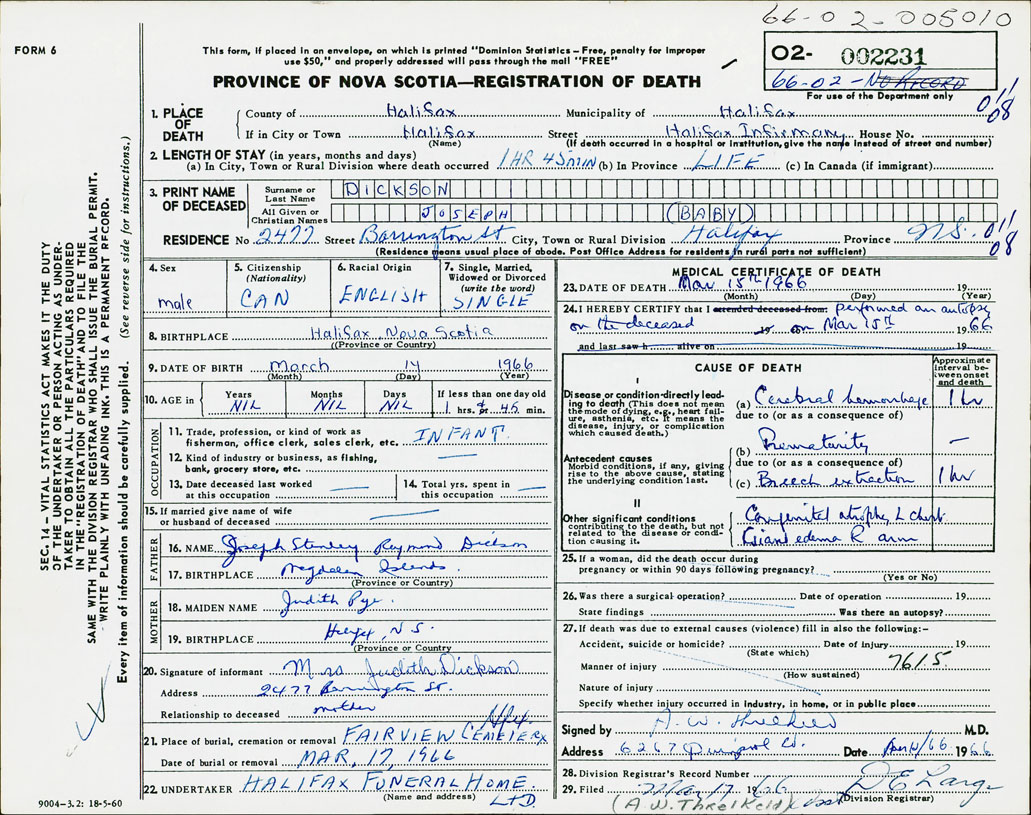 66-02-005010
FORM 6
This form, if placed in an envelope, on which is printed "Dominion Statistics – Free, penalty for improper
use $50," and properly addressed will pass through the mail "FREE"
PROVINCE OF NOVA SCOTIA—REGISTRATION OF DEATH
02- 002231
66-02 - NO RECORD
For use of the Department only
011
08
1. PLACE OF DEATH
County of Halifax Municipality of Halifax
If in City or Town Halifax Street Halifax Infirmary House No.
(Name) (If death occurred in a hospital or institution, give the name instead of street and number)
2. LENGTH OF STAY (in years, months and days)
(a) In City, Town or Rural Division where death occurred 1 HR 45 MIN (b) In Province LIFE (c) In Canada (if immigrant)
3. PRINT NAME OF DECEASED
Surname or Last Name DICKSON
All Given or Christian Names JOSEPH (BABY)
RESIDENCE No 2477 Street Barrington St City, Town or Rural Division Halifax Province N.S.
011
08
(Residence means usual place of abode. Post Office Address for residents in rural parts not sufficient)
4. Sex male
5. Citizenship (Nationality) CAN
6. Racial Origin ENGLISH
7. Single, Married, Widowed or Divorced (write the word) SINGLE
8. BIRTHPLACE Halifax, Nova Scotia
(Province or Country)
9. DATE OF BIRTH March 14 1966
(Month) (Day) (Year)
10. AGE in Years NIL Months NIL Days NIL If less than one day old 1 hrs. 45 min.
OCCUPATION
11. Trade, profession, or kind of work as
fisherman, office clerk, sales clerk, etc. INFANT
12. Kind of industry or business, as fishing,
bank, grocery store, etc.
13. Date deceased last worked
at this occupation
14. Total yrs. spent in
this occupation
15. If married give name of wife
or husband of deceased
FATHER
16. NAME Joseph Stanley Raymond Dickson
17. BIRTHPLACE Magdalen Islands
(Province or Country)
MOTHER
18. MAIDEN NAME Judith Pye
19. BIRTHPLACE Hfx, N.S.
(Province or Country)
20. Signature of informant Mrs Judith Dickson
Address 2477 Barrington St.
Relationship to deceased mother
Hfx.
21. Place of burial, cremation or removal FAIRVIEW CEMETERY
Date of burial or removal MAR. 17, 1966
22. UNDERTAKER HALIFAX FUNERAL HOME
(Name and address) LTD
MEDICAL CERTIFICATE OF DEATH
23. DATE OF DEATH Mar 15th 1966 19
(Month) (Day) (Year)
24. I HEREBY CERTIFY that I attended deceased from: performed an autopsy
on the deceased 19 on Mar 15th 1966
and last saw h alive on 19
CAUSE OF DEATH
Approximate interval between onset and death
I
Disease or condition directly leading to death (This does not mean
the mode of dying, e.g., heart failure, asthenia, etc. It means the
disease, injury, or complication
which caused death.)
(a) Cerebral hemorrhage 1 hr
due to (or as a consequence of)
Antecedent causes
Morbid conditions, if any, giving
rise to the above cause, stating
the underlying condition last.
(b) Prematurity –
due to (or as a consequence of)
(c) Breech extraction 1 hr
II
Other significant conditions
contributing to the death, but not
related to the disease or condition causing it.
Congenital atrophy L chest
Giant edema R arm
25. If a woman, did the death occur during
pregnancy or within 90 days following pregnancy?
(Yes or No)
26. Was there a surgical operation? Date of operation 19
State findings Was there an autopsy?
27. If death was due to external causes (violence) fill in also the following:–
Accident, suicide or homicide? Date of injury 19
(State which)
Manner of injury 761.5
(How sustained)
Nature of injury
Specify whether injury occurred in industry, in home, or in public place
Signed by A. W. Threlkeld M.D.
Address 6267 Quinpool Rd. Date 1966
28. Division Registrar's Record Number
29. Filed Mar 17 1966 D E Large
(Division Registrar)
(A W. Threlkeld)
SEC. 14 – VITAL STATISTICS ACT MAKES IT THE DUTY
OF THE UNDERTAKER OR PERSON ACTING AS UNDERTAKER TO OBTAIN ALL THE PARTICULARS REQUIRED
IN THE "REGISTRATION OF DEATH" AND TO FILE THE
SAME WITH THE DIVISION REGISTRAR WHO SHALL ISSUE THE BURIAL PERMIT.
WRITE PLAINLY WITH UNFADING INK. THIS IS A PERMANENT RECORD.
Every item of information should be carefully supplied. (See reverse side for instructions.)
9004-3.2: 18-5-60